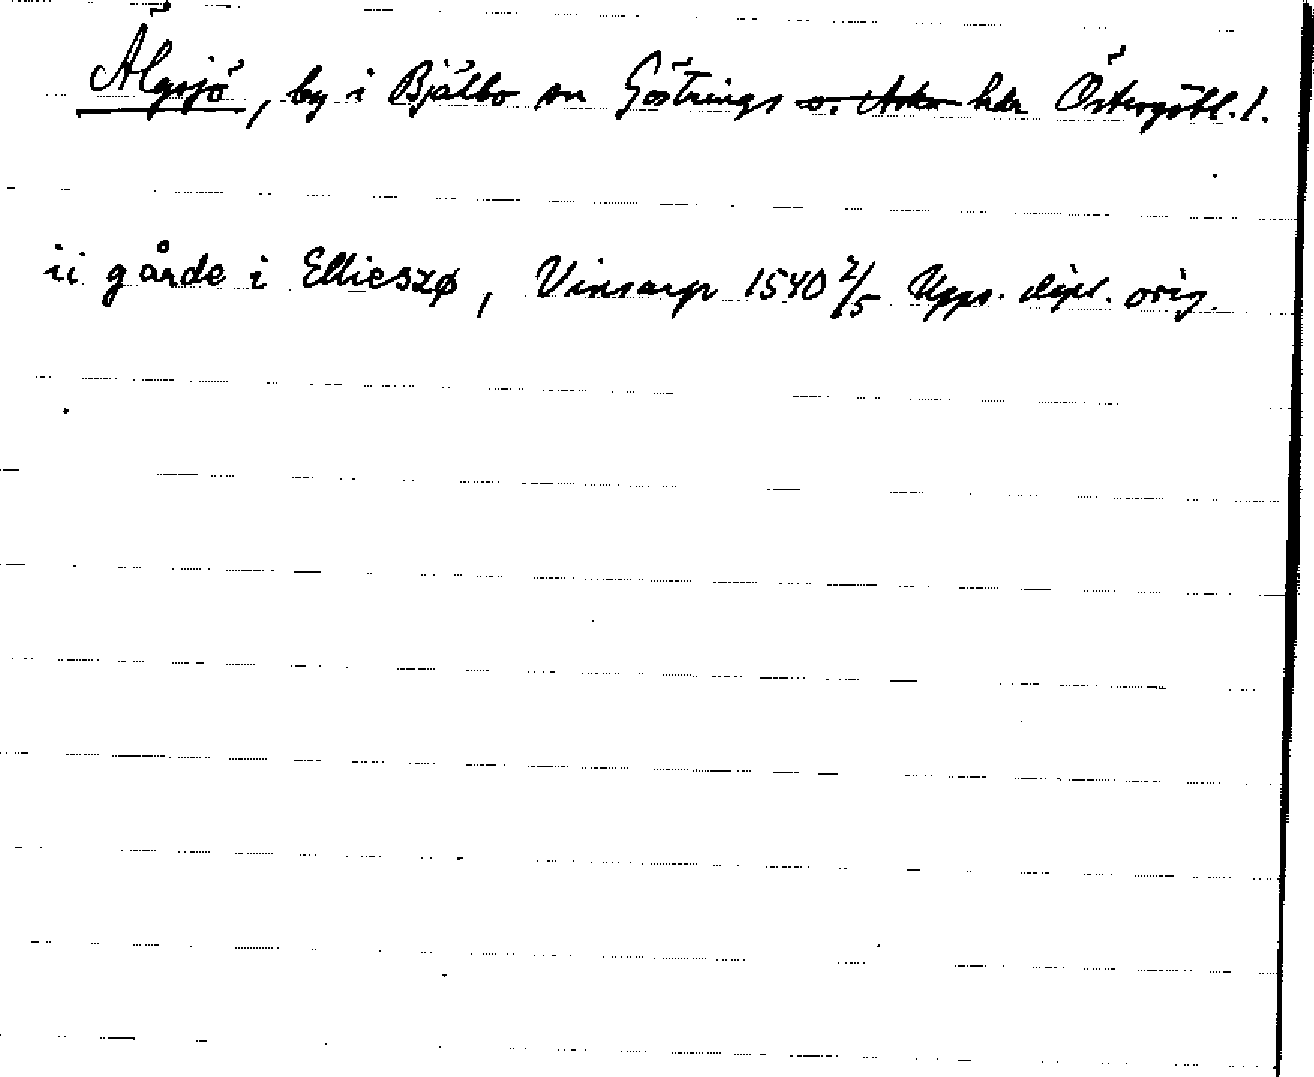 Älgsjö, by i Bjälbo sn Göstrings o. Aska hdr Östergötl. l.
ii gårde i Ellieszø, Vinsarp 1540 2/5 Upps. dipl. orig.